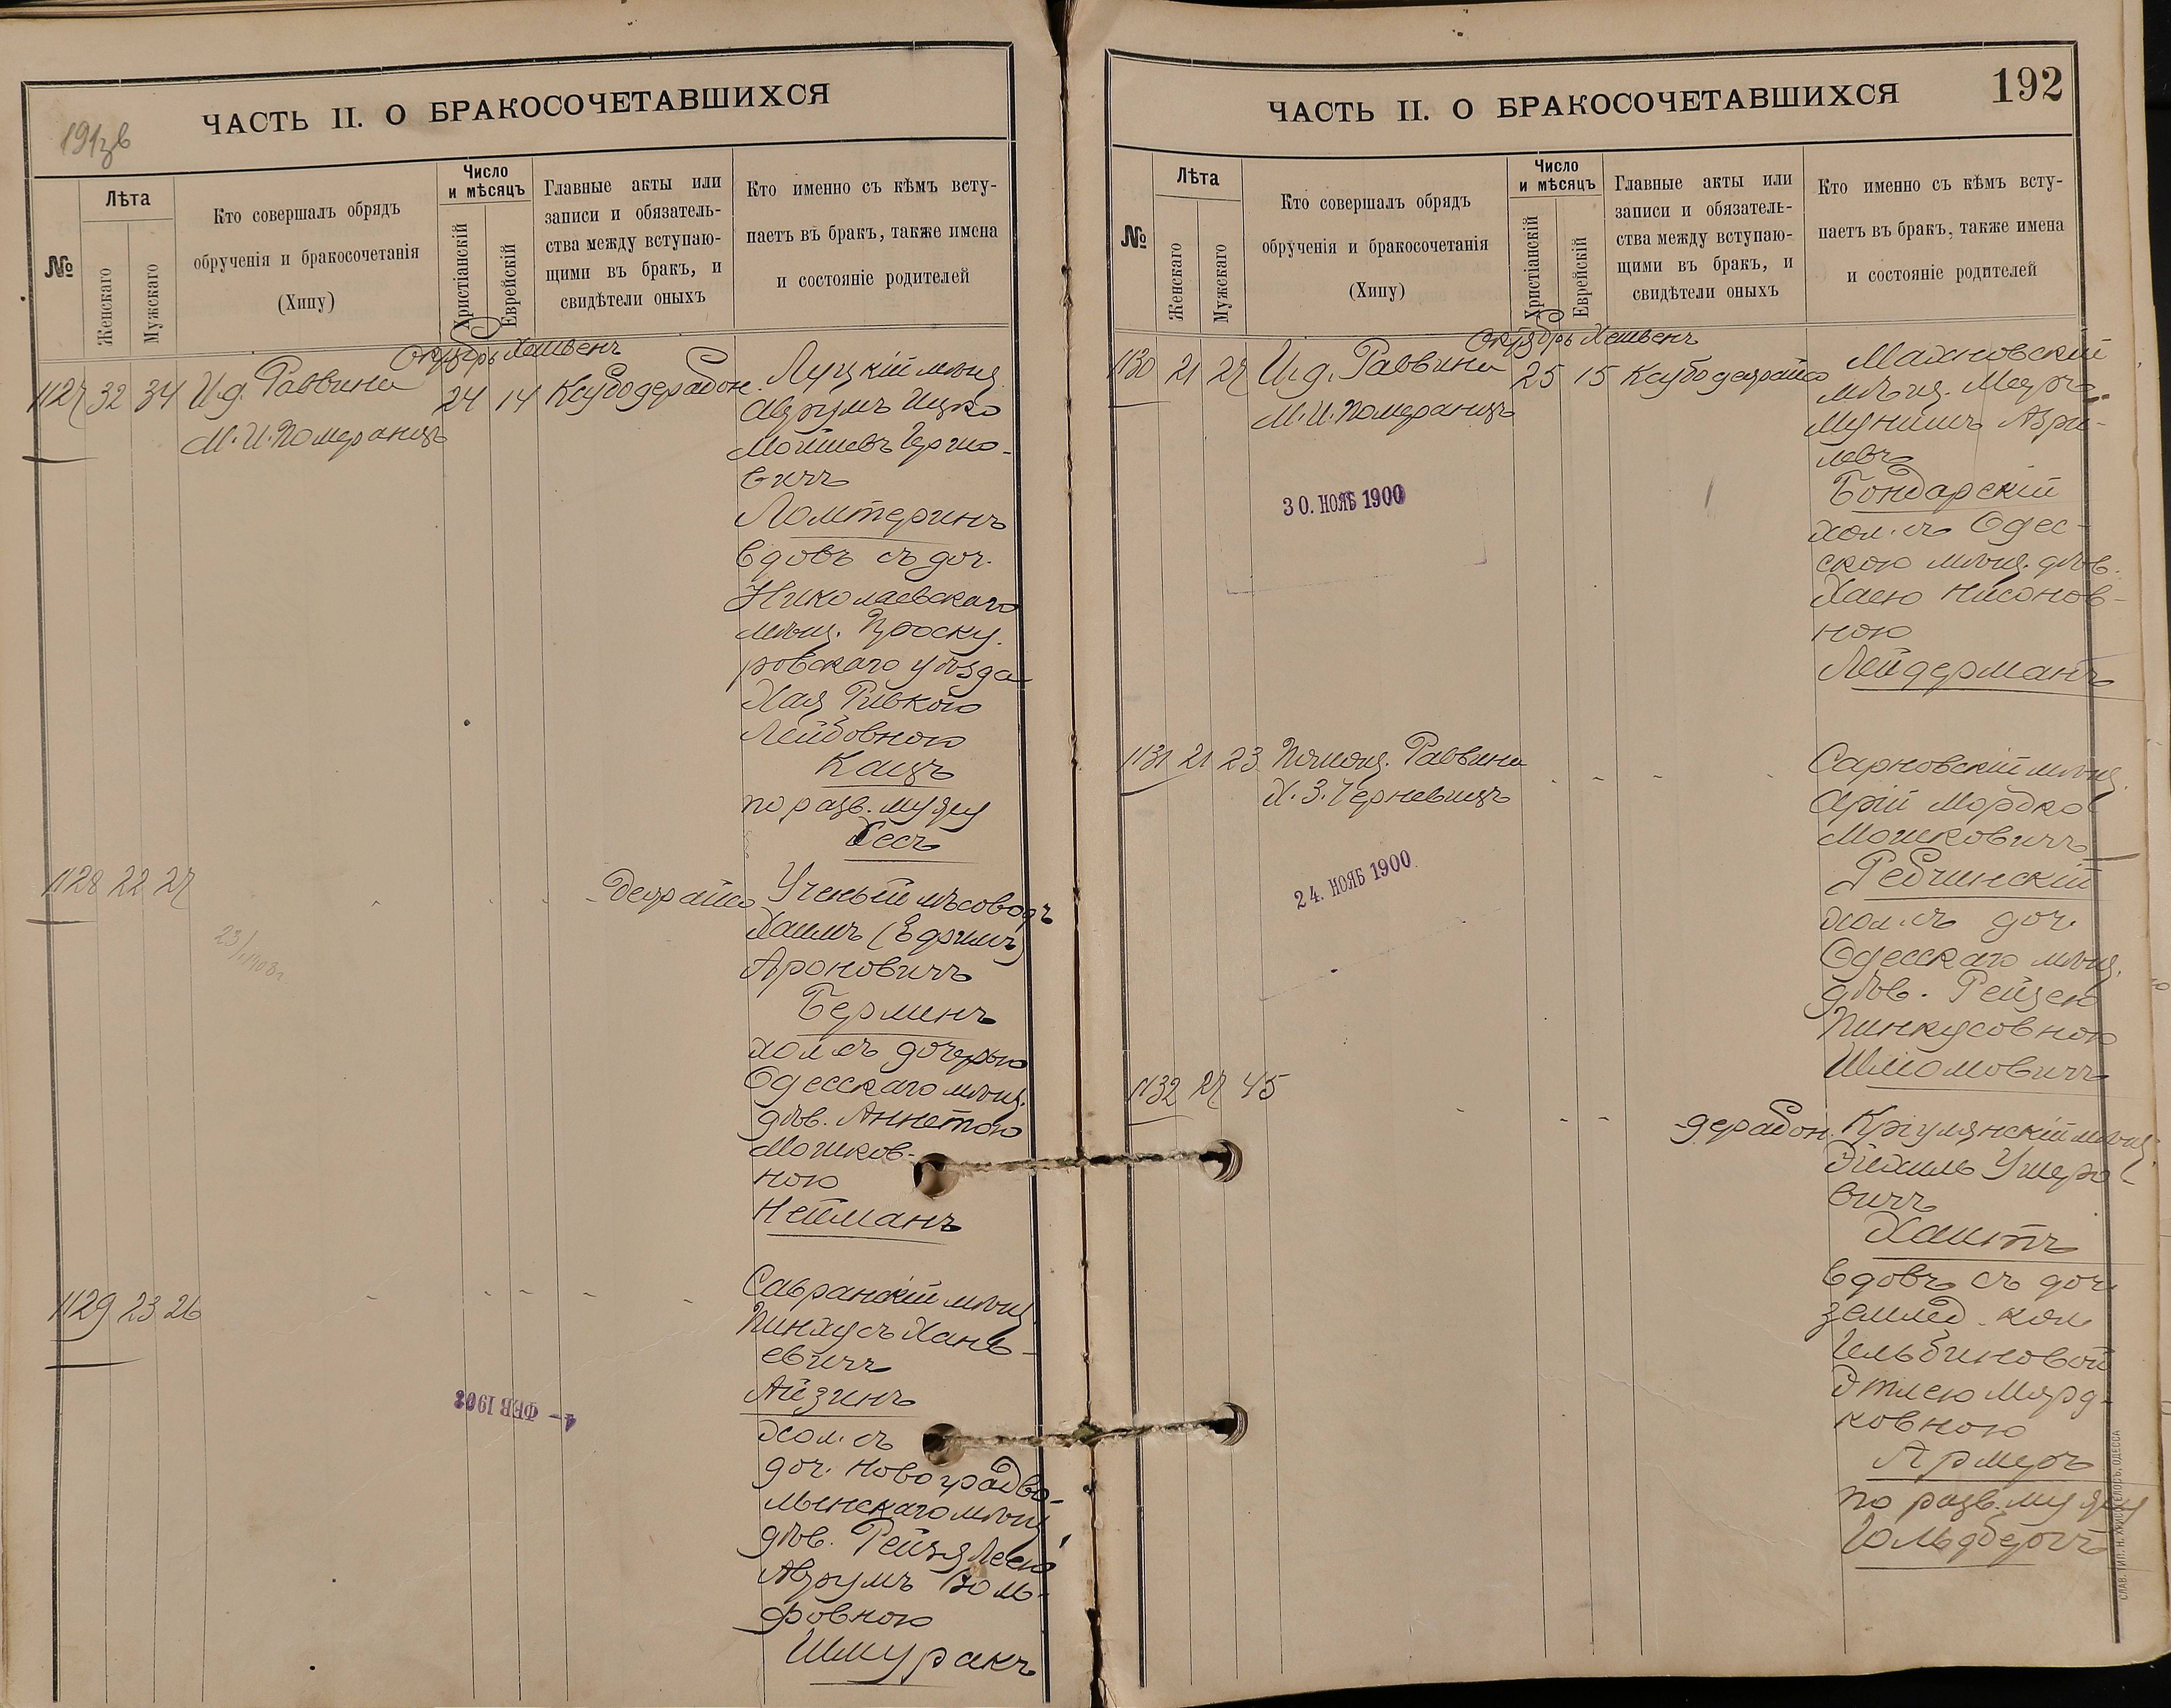 191зв
ЧАСТЬ II. О БРАКОСОЧЕТАВШИХСЯ
№
Лѣта
Женскаго
Мужскаго
Кто совершалъ обрядъ
обрученія и бракосочетанія
(Хипу)
Число
и мѣсяцъ
Христіанскій
Еврейскій
Главные акты или
записи и обязатель-
ства между вступаю-
щими въ бракъ, и
свидѣтели оныхъ
Кто именно съ кѣмъ всту-
паетъ въ бракъ, также имена
и состояніе родителей
Октябрь Хешвенъ
1127 32 34 И.д. Раввина
М.И. Померанцъ
24 14
Луцкій мѣщ.
Аврумъ Ицко
Мошковъ Гершо-
вичъ
Ломтеринъ
вдовъ съ доч.
Николаевскаго
мѣщ. Проску-
ровскаго уѣзда
Хая Ривкою
Лейбовною
Кацъ
по разв. мужу
Гесъ
1128 22 27
Ученый лѣсоводъ
Хаимъ (Ефимъ)
Ароновичъ
Берминъ
хол. съ дочерью
Одесскаго мѣщ.
дѣв. Аннетою
Мошков-
ною
Нейманъ
1129 23 26
Савранскій мѣщ.
Пинхусъ Хань-
евичъ
Айзинъ
хол. съ
доч. Новоградво-
лынскаго мѣщ.
дѣв. Рейзя Леею
Аврумъ Воль-
фовною
Шмуракъ
4- ФЕВ 1902
192
ЧАСТЬ II. О БРАКОСОЧЕТАВШИХСЯ
№
Лѣта
Женскаго
Мужскаго
Кто совершалъ обрядъ
обрученія и бракосочетанія
(Хипу)
Число
и мѣсяцъ
Христіанскій
Еврейскій
Главные акты или
записи и обязатель-
ства между вступаю-
щими въ бракъ, и
свидѣтели оныхъ
Кто именно съ кѣмъ всту-
паетъ въ бракъ, также имена
и состояніе родителей
Октябрь Хешвенъ
1130 21 27 И.д. Раввина
М.И. Померанцъ
25 15
30. НОЯБ 1900
Махновскій
мѣщ.
Мунишъ Азри-
левъ
Бондарскій
хол. съ Одес-
скою мѣщ. дѣв.
Хаею Нисонов-
ною
Лейдерманъ
1131 21 23 Помощ. Раввина
Х.З. Черневицъ
24. НОЯБ 1900
Сарновскій мѣщ.
Арій Мордко
Мошковичъ
Ребчинскій
хол. съ доч.
Одесскаго мѣщ.
дѣв. Рейзею
Пинкусовною
Шломовичъ
1132 27 45
Кріулянскій мѣщ.
Эйхиль Ушеро-
вичъ
Хаитъ
вдовъ съ доч.
землед. кол.
Ильбиновой
Этлею Морд-
ковною
Армеръ
по разв. мужу
Гольдбергъ
СЛАВ. ТИП. Н. ХРИСОГЕЛОСЪ, ОДЕССА